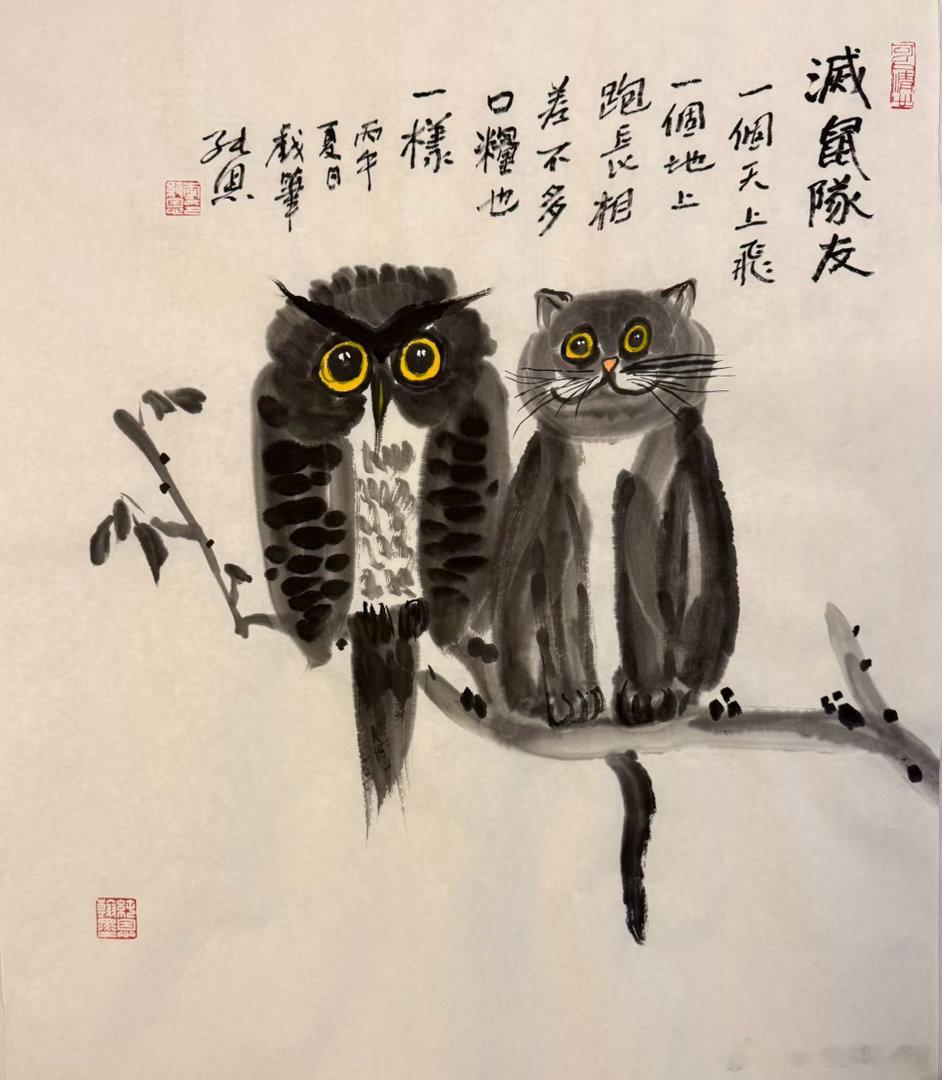 滅鼠隊友
一個天上飛
一個地上
跑長相
差不多
口糧也
一樣
丙午
夏日
戲筆
純恩
純恩
翰墨